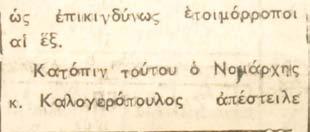 ὡς ἐπικιγδύνως ἑτοιμόρροποι
αἱ ἕξ.
Κατόπιν τούτου ὁ Νομάρχης
κ. Καλογερόπουλος ἀπέστειλε